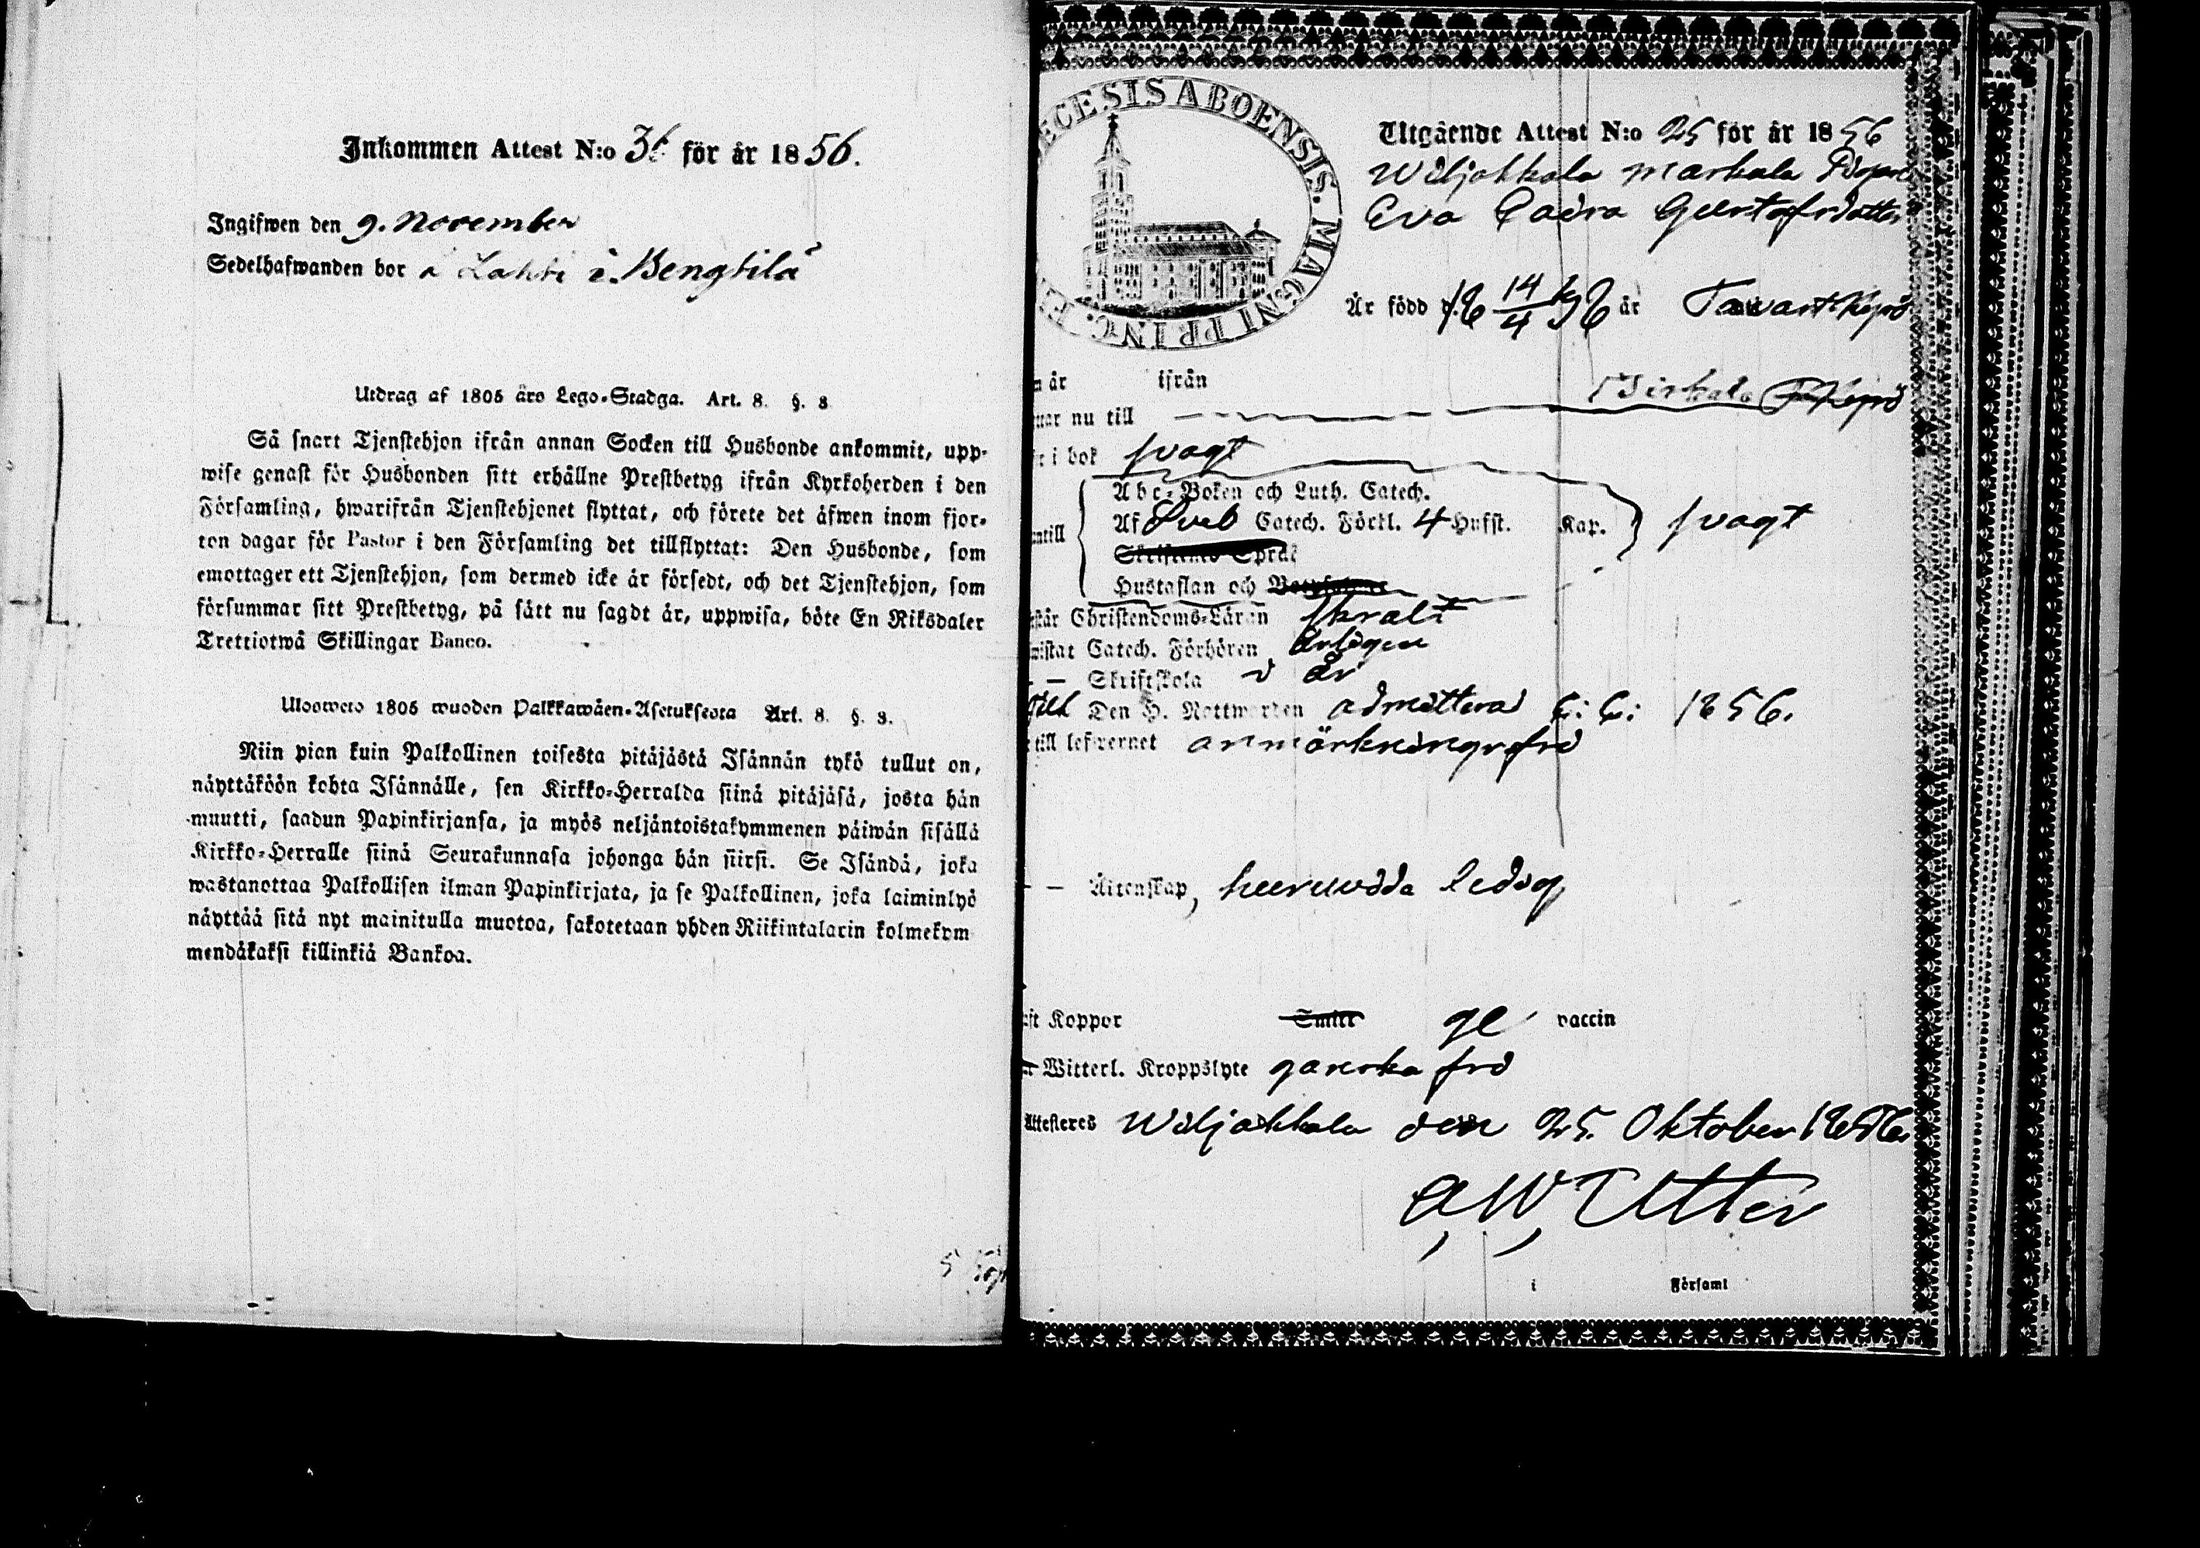 Inkommen Attest N:o 36 för år 1856.
Ingifwen den 9. November
Sedelhafwanden bor å Lahti i Bengtilä
Utdrag af 1805 års Lego-Stadga. Art. 8. §. 8
Så snart Tjenstehjon ifrån annan Socken till Husbonde ankommit, upp-
wise genast för Husbonden sitt erhållne Prestbetyg ifrån Kyrkoherden i den
Församling, hwarifrån Tjenstehjonet flyttat, och förete det äfwen inom fjor-
ton dagar för Pastor i den Församling det tillflyttat: Den Husbonde, som
emottager ett Tjenstehjon, som dermed icke är försedt, och det Tjenstehjon, som
försummar sitt Prestbetyg, på sätt nu sagdt är, uppwisa, böte En Riksdaler
Trettiotwå Skillingar Banco.
Ulosweto 1805 wuoden Palkkawäen-Asetuksesta Art. 8. §. 8.
Niin pian kuin Palkollinen toisesta pitäjästä Isännän tykö tullut on,
näyttäköön kohta Isännälle, sen Kirkko-Herralda siinä pitäjäsä, josta hän
muutti, saadun Papinkirjansa, ja myös neljäntoistakymmenen päiwän sisällä
Kirkko-Herralle siinä Seurakunnasa johonga hän siirsi. Se Isändä, joka
wastanottaa Palkollisen ilman Papinkirjata, ja se Palkollinen, joka laiminlyö
näyttää sitä nyt mainitulla muotoa, sakotetaan yhden Riikintalarin kolmekym
mendäkaksi killinkiä Bankoa.
ECESIS ABOENSIS. MAGNI PRINC. F
Utgående Attest N:o 25 för år 1856
Wiljakkala Markula Pigan
Eva Caisa Gustafsdotter
Är född d. 14/4 är Tavastkyrö
år ifrån
nu till Birkala Kyrko
i bok svagt
Abc-Boken och Luth. Catech.
Af Sveb Catech. Förkl. 4 Hufst. Kap. svagt
Skriftens Språk
Hustaflan och
Christendoms-Läran skralt
Catech. Förhören årligen
— Skriftskola i år
Den H. Nattwarden admitterad 1856.
till lefwernet anmärkningsfri
— — Äktenskap, ledig
Koppor ge vaccin
Witterl. Kroppslyte ganska fri
Attesteres Wiljakkala den 25. Oktober 1856
A, W, Utter
i Församl